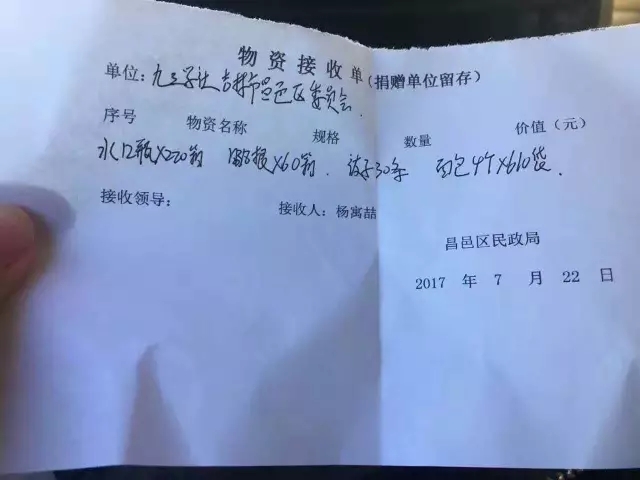 物资接收单(捐赠单位留存)
单位:九三学社吉林市昌邑区委员会
序号 物资名称 规格 数量 价值(元)
水12瓶×220箱 ×60箱 30条 面包4个×610袋
接收领导: 接收人:杨寓喆
昌邑区民政局
2017 年 7 月 22 日